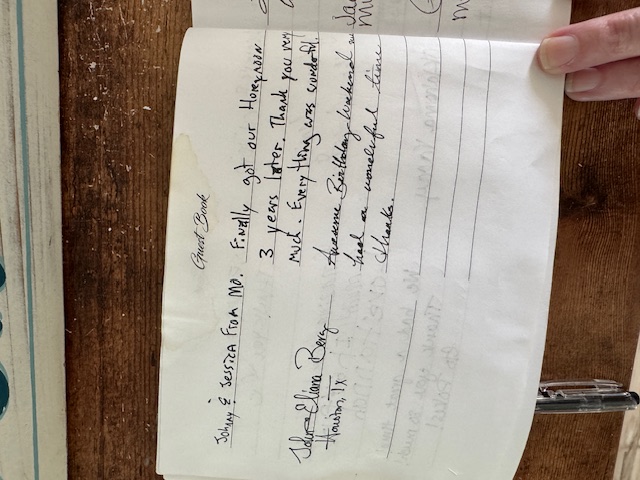 Guest Book
Johnny & Jessica From Mo. Finally got our Honeymoon
3 years later. Thank you very
much. Everything was wonderful!
John & Eliana Berg Awesome Birthday Weekend we
Houston, TX had a wonderful time
Thanks.